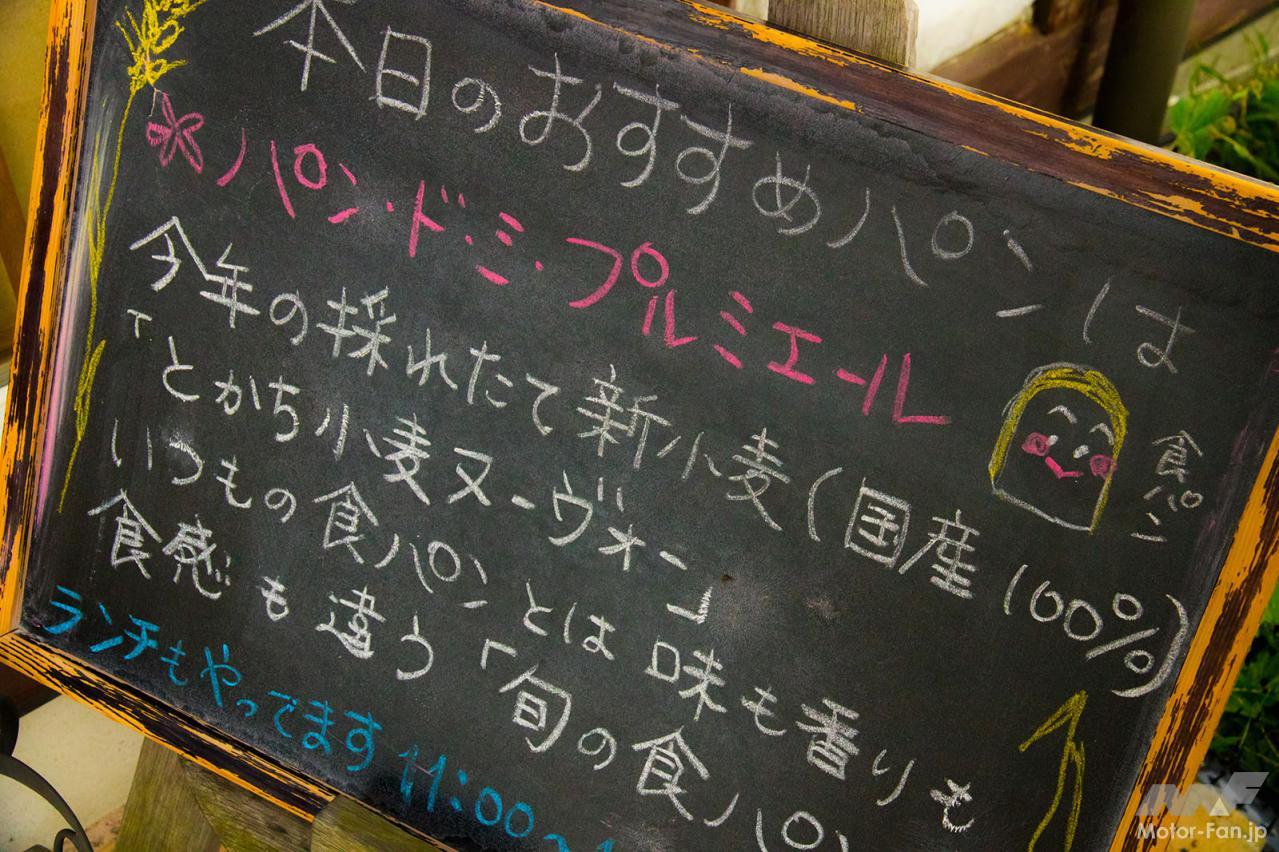 本日のおすすめパンーは
パン・ド・ミ・プルミエール
今年の採れたて新小麦（国産100％）
「とかち小麦ヌーヴォー」
食パン
いつもの食パンとは味も香りも
食感も違う「旬の食パン
ランチもやってます 11:00〜
Motor-Fan.jp